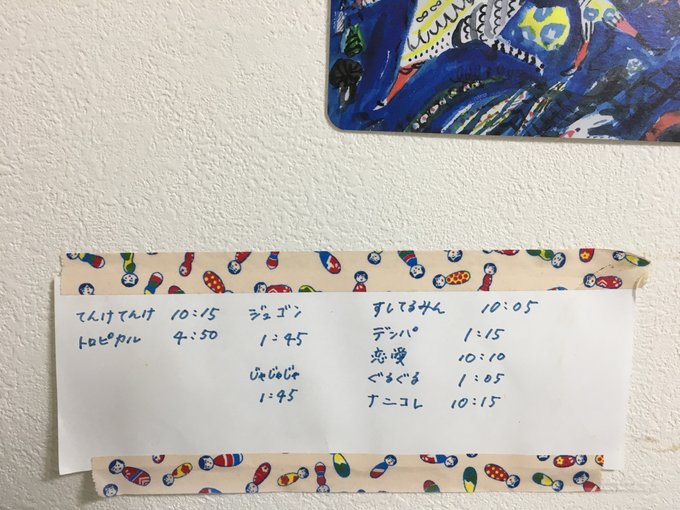 てんけてんけ 10:15
トロピカル 4:50
ジュゴン
1:45
じゃじゃじゃ
1:45
すしてるみん 10:05
デンパ 1:15
恋愛 10:10
ぐるぐる 1:05
ナニコレ 10:15